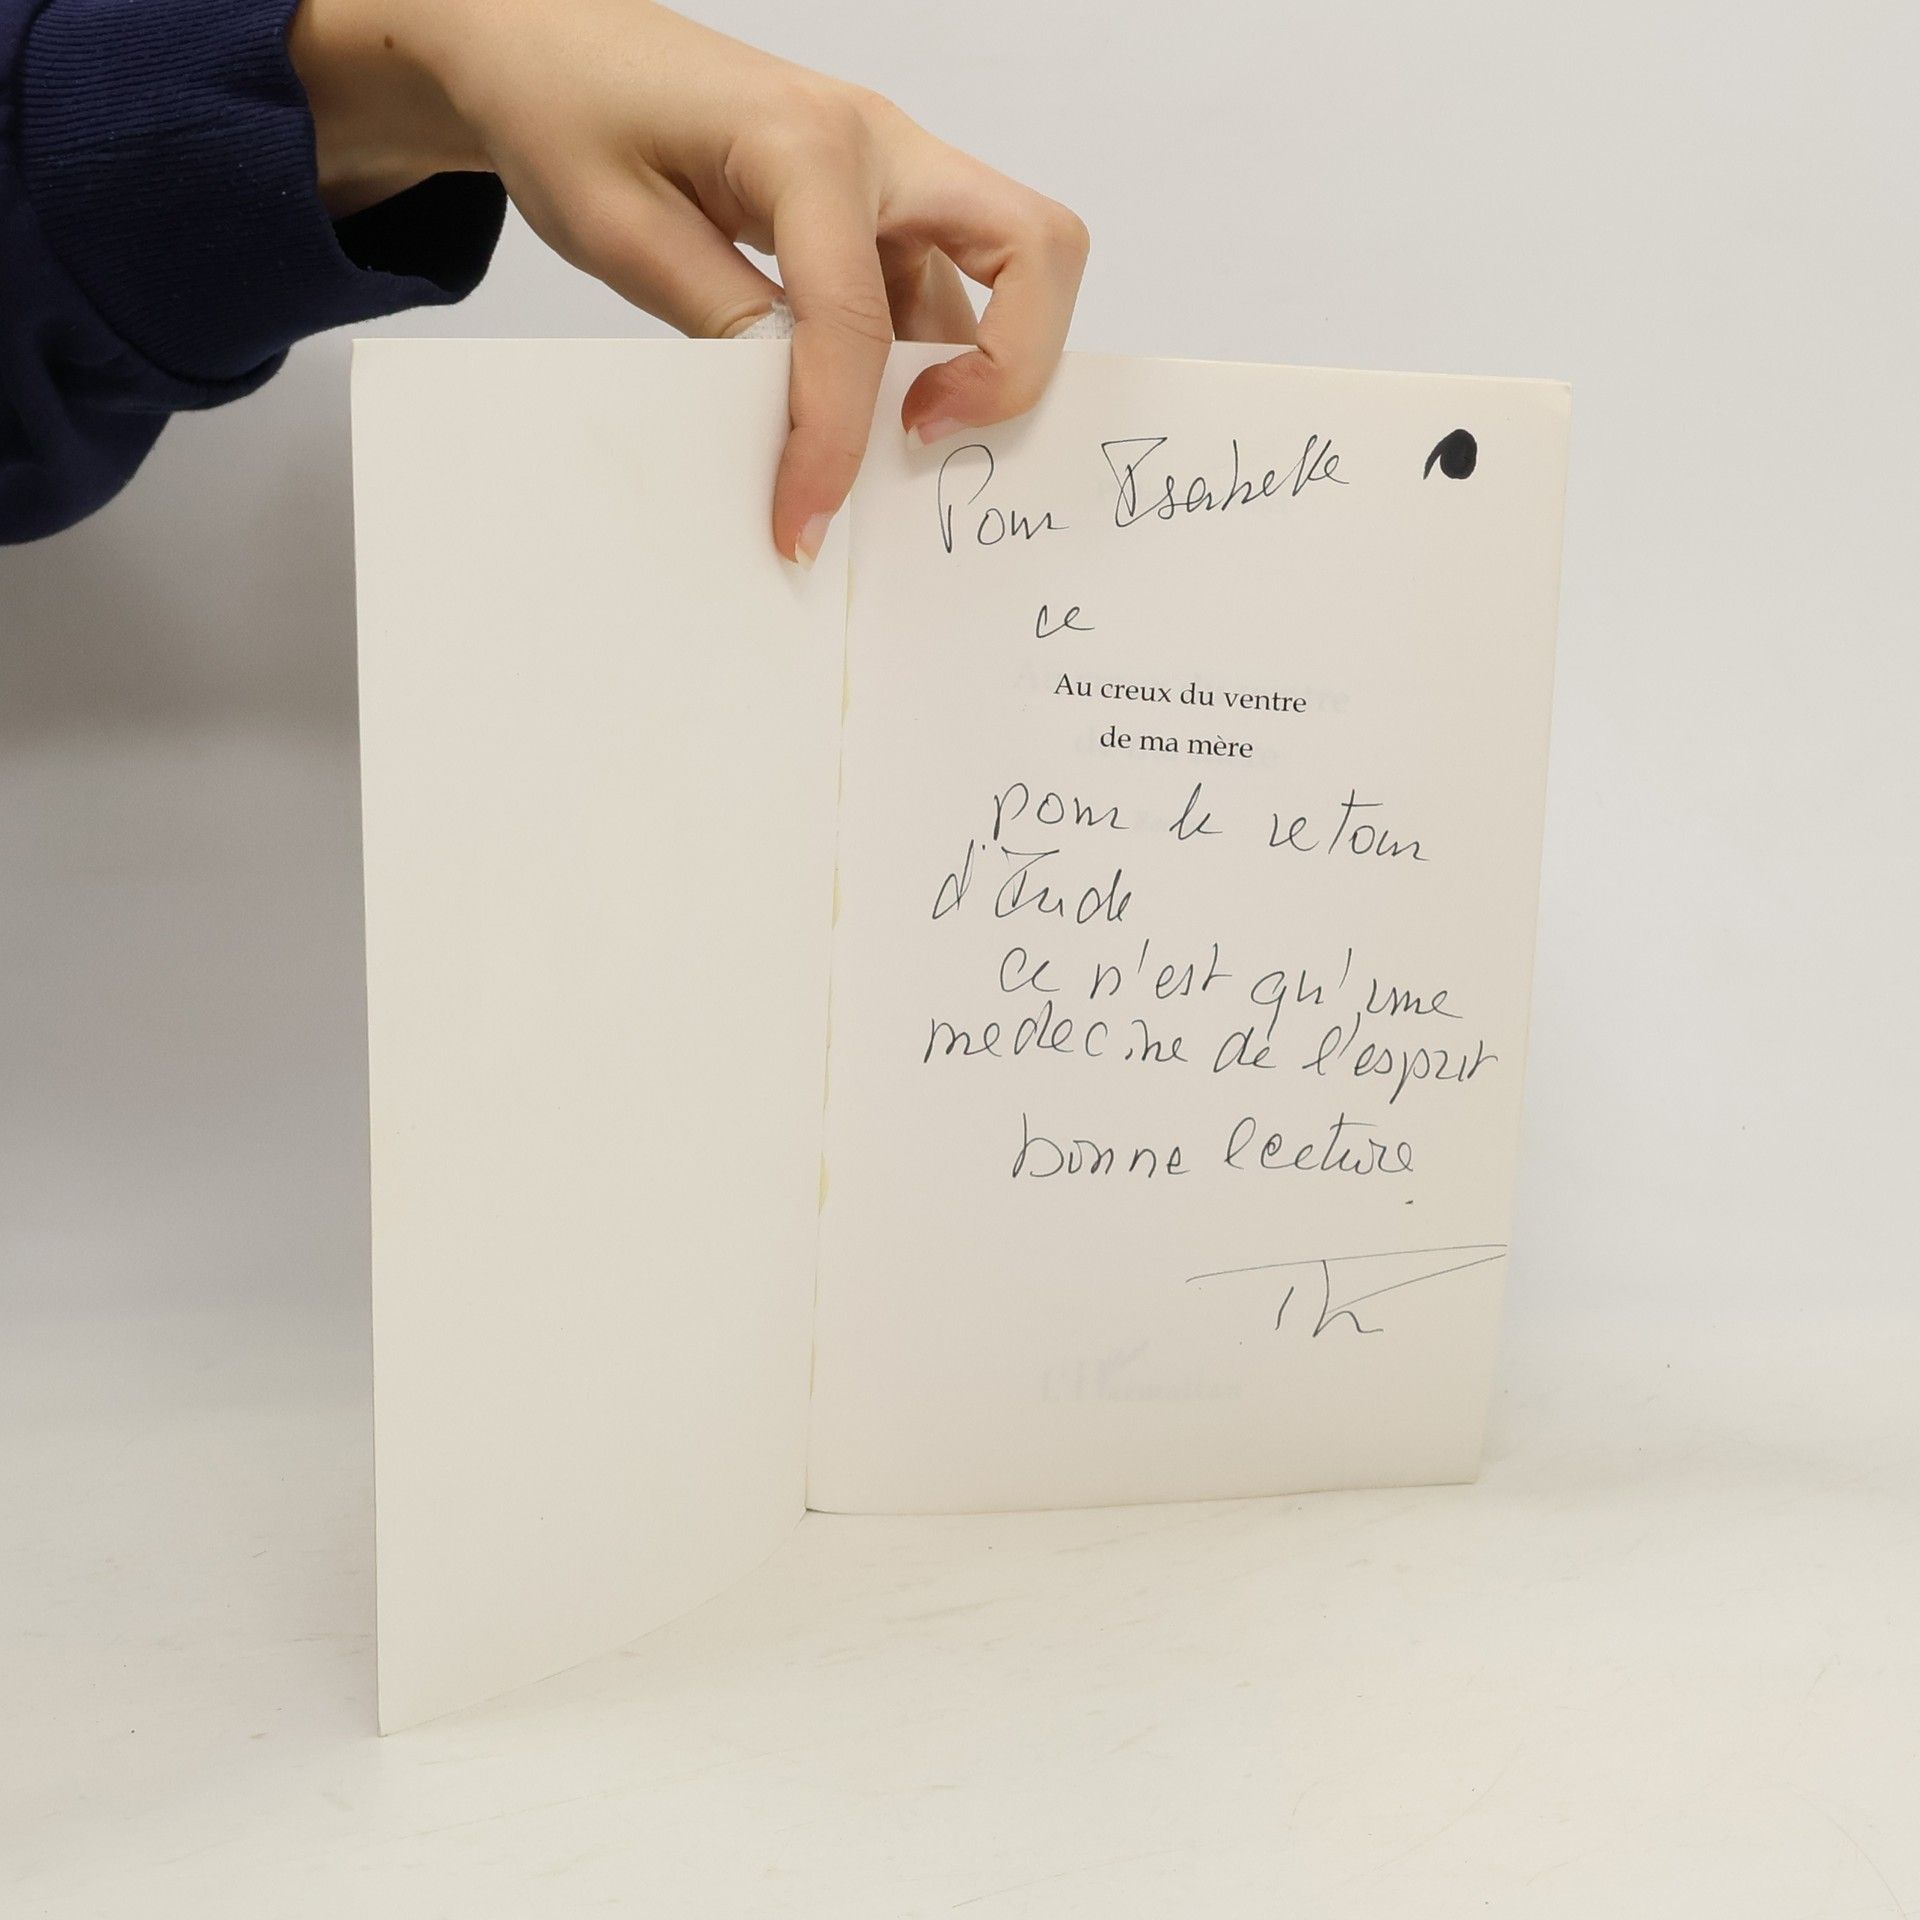 Pour Isabelle
ce
Au creux du ventre
de ma mère
pour le retour
d'Inde
ce n'est qu'une
medecine de l'esprit
bonne lecture